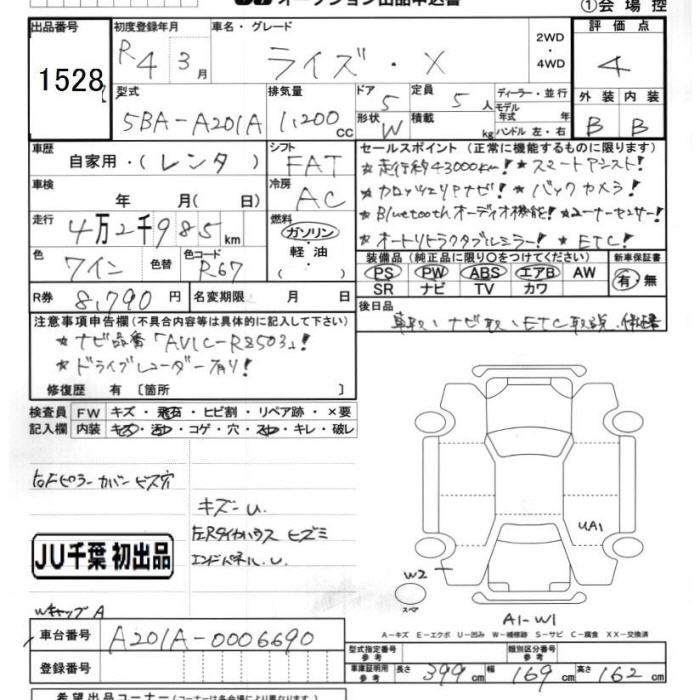 オークション出品申込書
①会場控
出品番号 初度登録年月 車名・グレード 2WD・4WD 評価点
1528 R4 3月 ライズ・X 4
型式 排気量 ドア 定員 ディーラー・並行 外装 内装
5BA-A201A 1,200cc 5 5人 モデル年式 年 B B
形状 W 積載 kg ハンドル 左・右
車歴 シフト セールスポイント（正常に機能するものに限ります）
自家用・（レンタ） FAT ★走行約43000km! ★スマートアシスト!
車検 冷房 ★カロッツェリアナビ! ★バックカメラ!
年 月（ 日） AC ★Bluetoothオーディオ機能! ★コーナーセンサー!
走行 燃料 ★オートリトラクタブルミラー! ★ETC!
4万2千985km ガソリン・軽油（ ）
色 色替 色コード 装備品（純正品に限り○をつけてください） 新車保証書
ワイン R67 PS PW ABS エアB AW 有・無
SR ナビ TV カワ
R券 8,790円 名変期限 月 日 後日品
車取、ナビ取、ETC取説
注意事項申告欄（不具合内容等は具体的に記入して下さい）
★ナビ品番「AVIC-RZ503」!
★ドライブレコーダー有り!
修復歴 有〔箇所 〕
検査員記入欄 FW キズ・飛石・ヒビ割・リペア跡・×要
内装 キズ・汚・コゲ・穴・スレ・キレ・破レ
右Fピラーカバービス穴
キズ-U
左Rタイヤハウス ヒズミ
エンドパネル.U
UA1
JU千葉 初出品
W2
スペア
WキャップA
A1-W1
A－キズ E－エクボ U－凹み W－補修跡 S－サビ C－腐食 XX－交換済
車台番号 A201A-0006690
型式指定番号 参考 類別区分番号 参考
登録番号
車庫証明用 参考 長さ 399cm 幅 169cm 高さ 162cm
希望出品コーナー（コーナーは各会場により異なります）